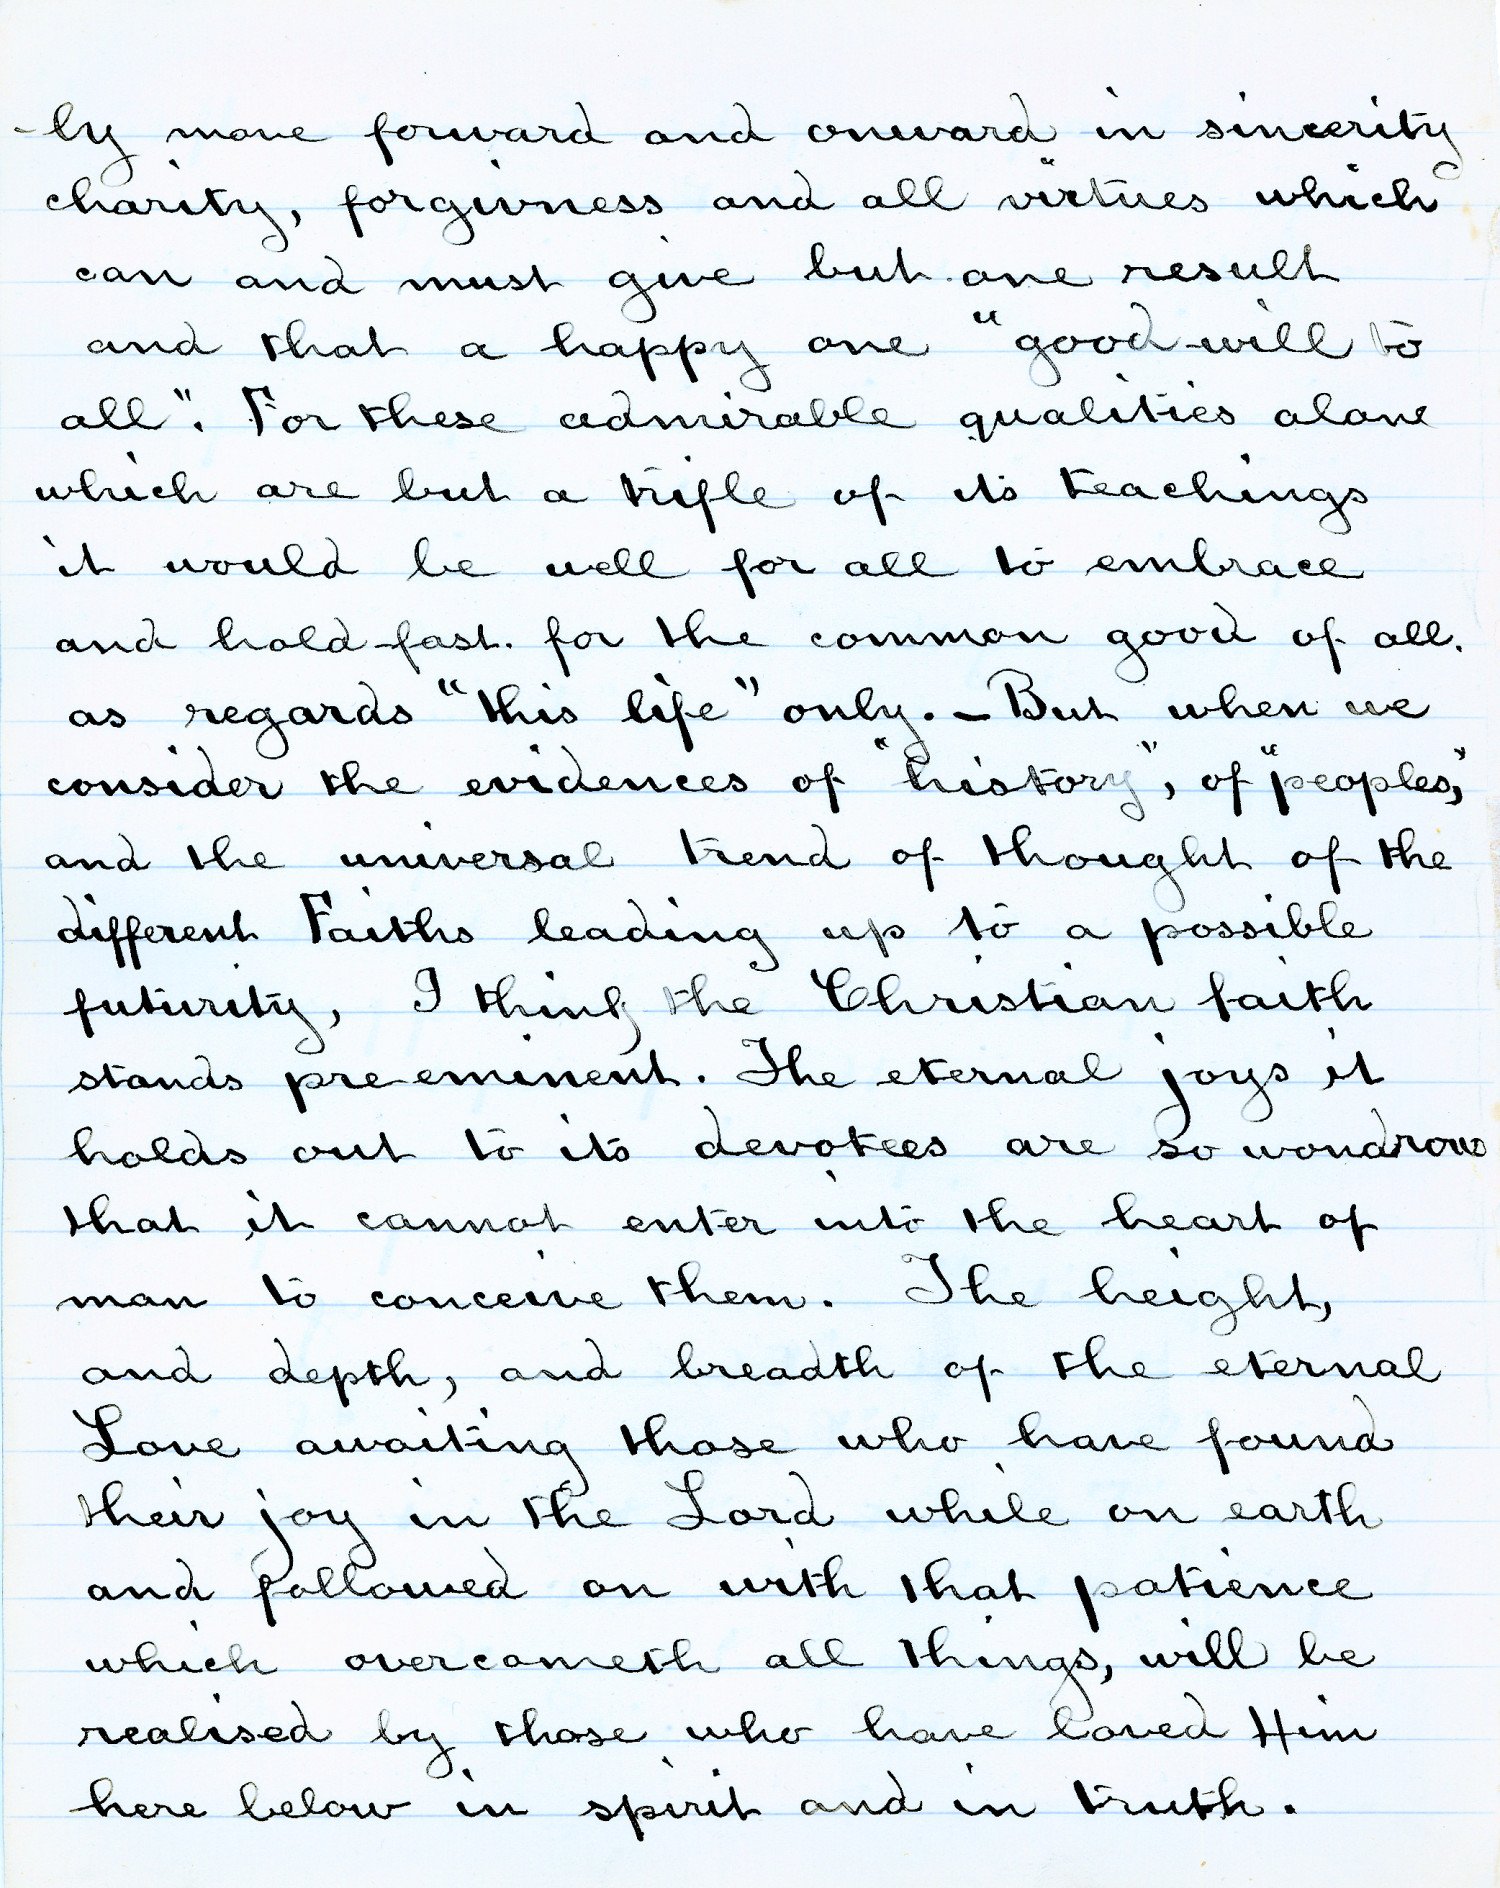 -ly move forward and onward in sincerity
charity, forgivness and all virtues which
can and must give but one result
and that a happy one "good-will to
all". For these admirable qualities alone
which are but a trifle of its teachings
it would be well for all to embrace
and hold-fast. for the common good of all.
as regards "this life" only. - But when we
consider the evidences of "history", of "peoples,"
and the universal trend of thought of the
different Faiths leading up to a possible
futurity, I think the Christian faith
stands pre-eminent. The eternal joys it
holds out to its devotees are so wondrous
that it cannot enter into the heart of
man to conceive them. The height,
and depth, and breadth of the eternal
Love awaiting those who have found
their joy in the Lord while on earth
and followed on with that patience
which overcometh all things, will be
realised by those who have loved Him
here below in spirit and in truth.